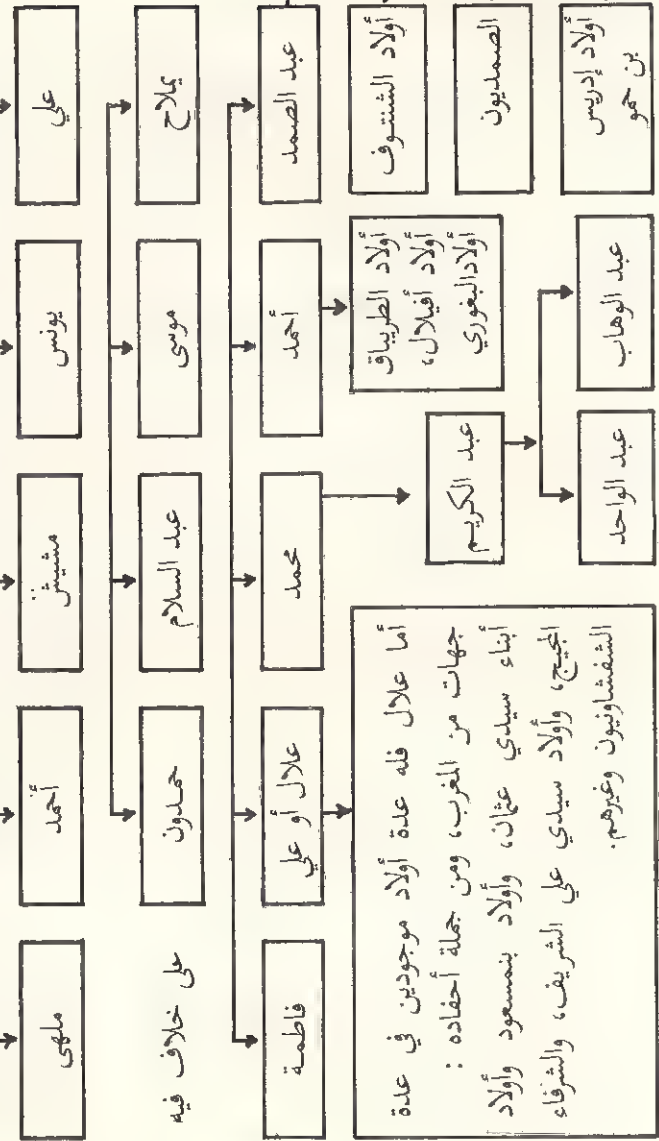 علي
يونس
مشيش
أحمد
ملهى
يملاح
موسى
عبد السلام
حمدون
على خلاف فيه
عبد الصمد
أحمد
محمد
علال أو علي
فاطمة
أولاد الشنتوف
الصمديون
أولاد إدريس
بن حمو
أولاد الطريباق
أولاد أفيلال،
أولاد البغوري
عبد الكريم
عبد الوهاب
عبد الواحد
أما علال فله عدة أولاد موجودين في عدة
جهات من المغرب، ومن جملة أحفاده :
أبناء سيدي عثمان، وأولاد بنمسعود وأولاد
المجيح، وأولاد سيدي علي الشريف، والشرفاء
الشفشاونيون وغيرهم.